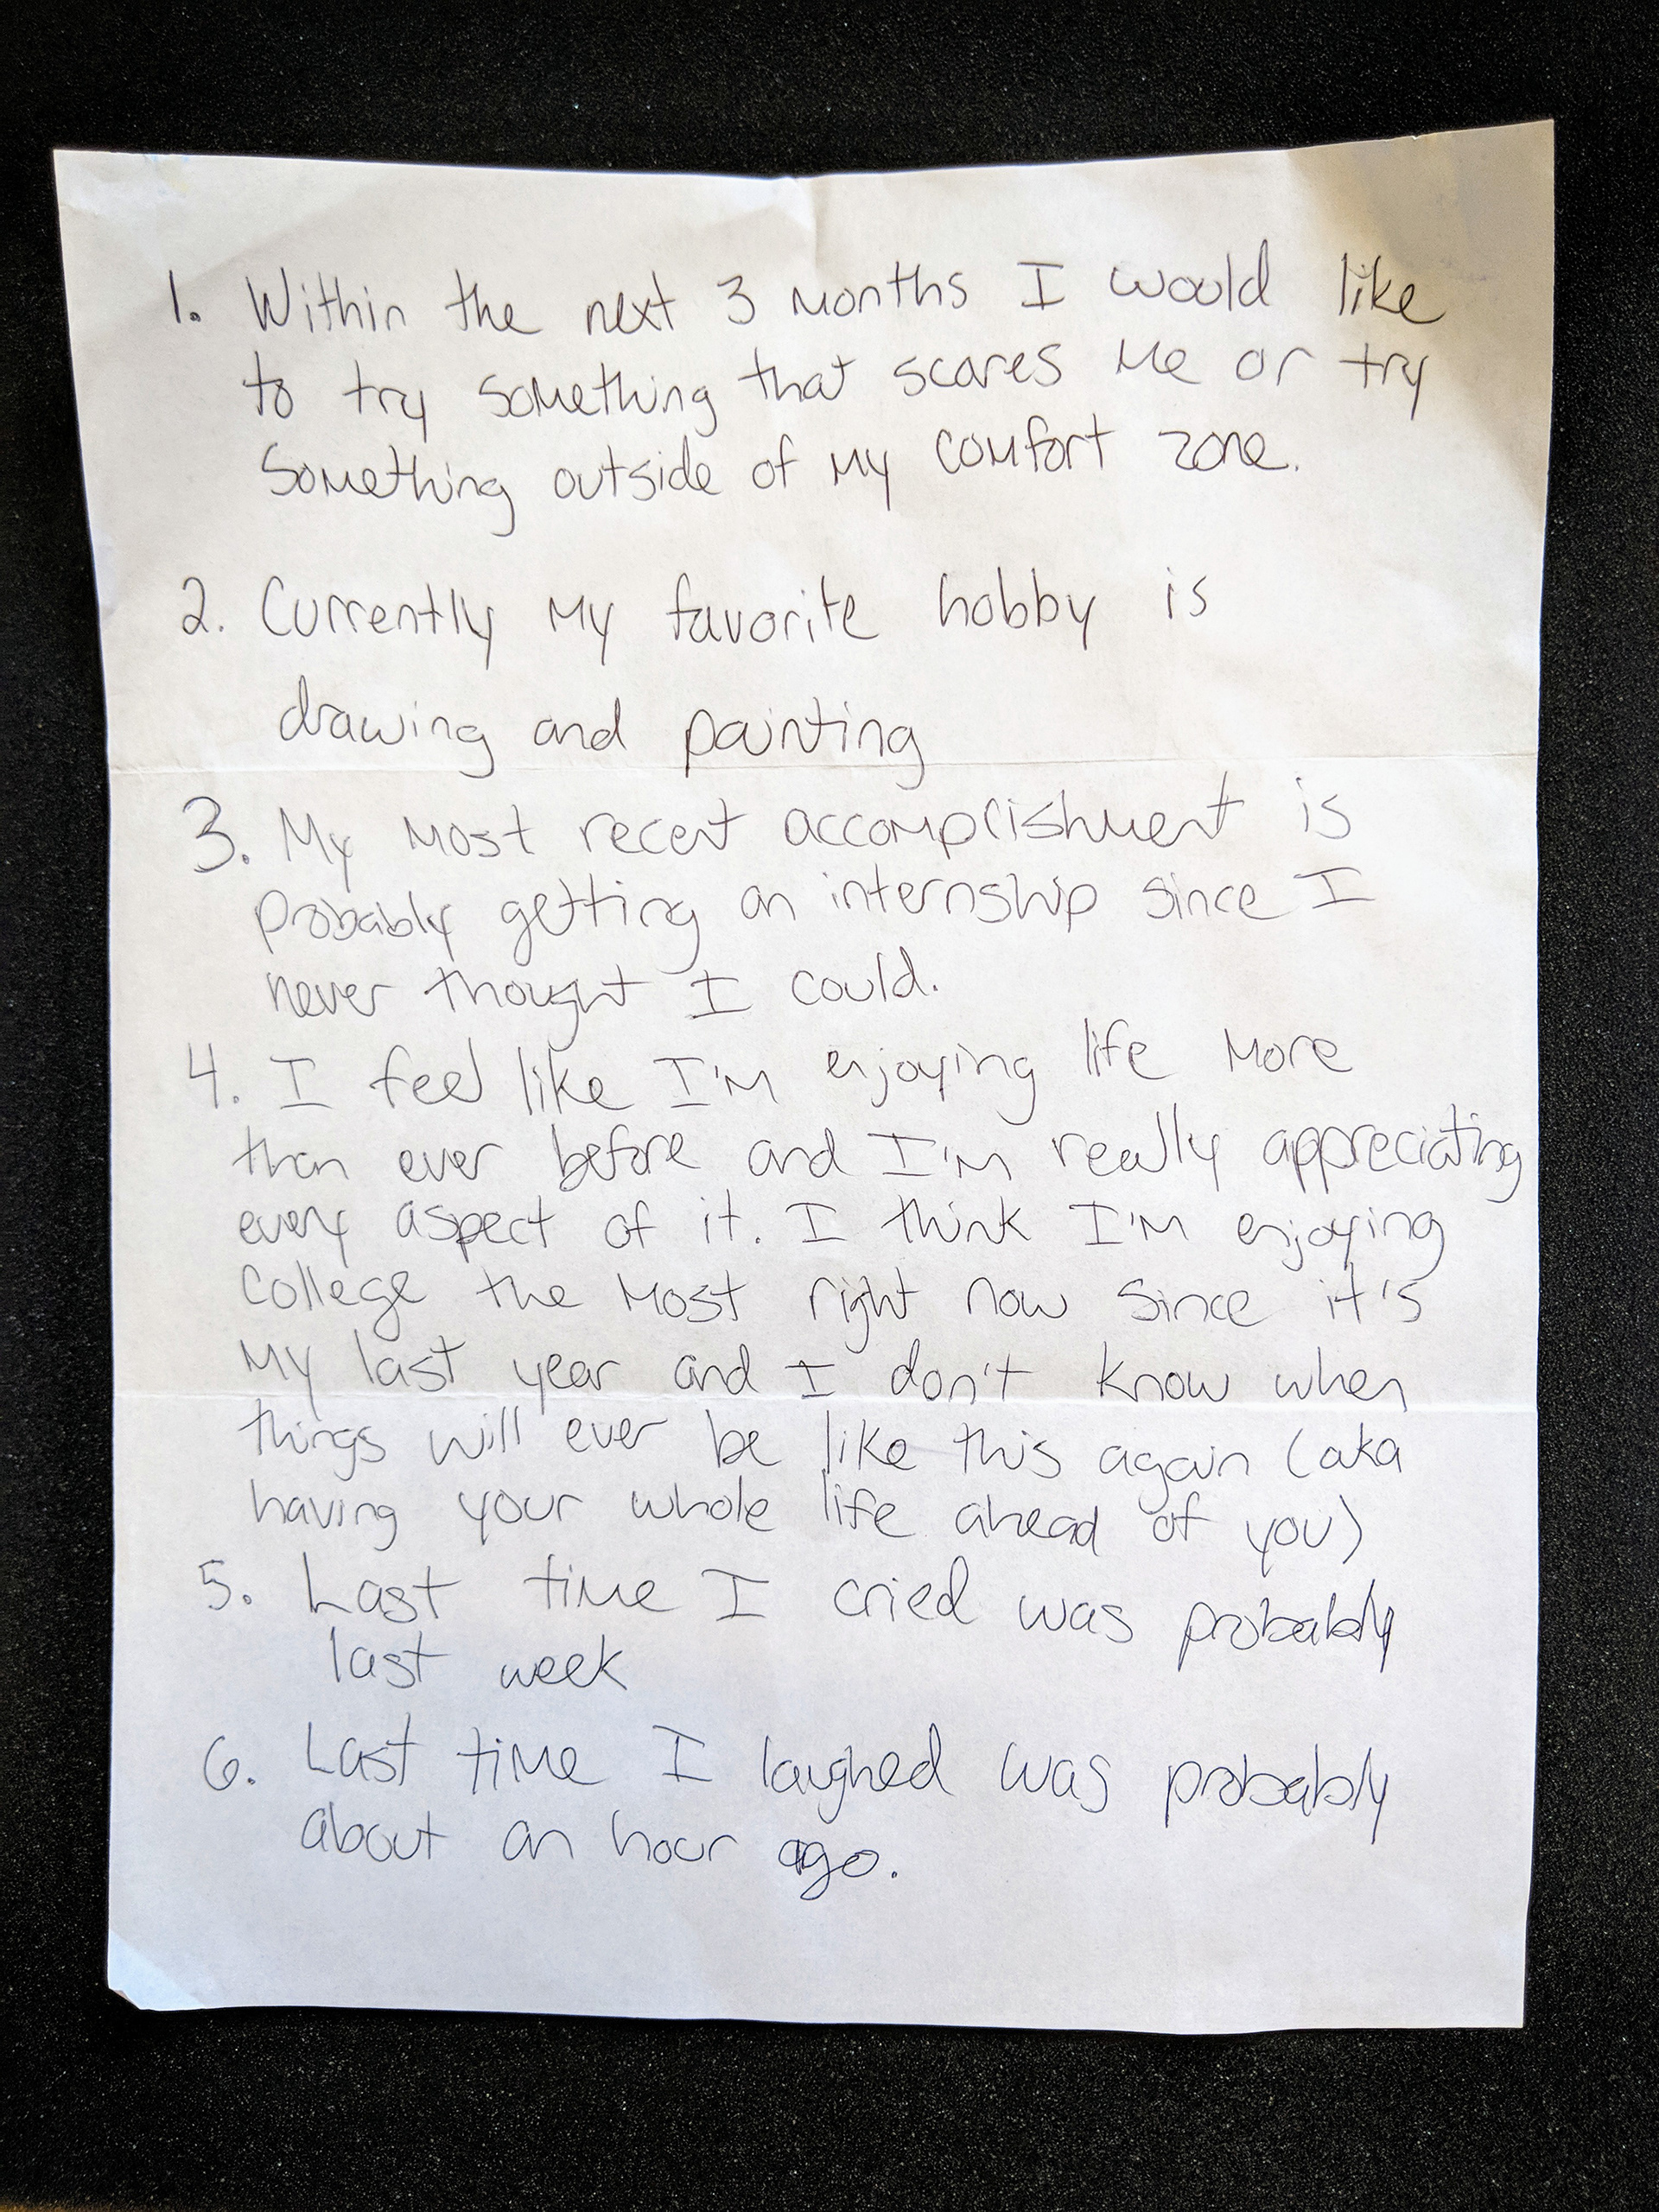 1. Within the next 3 months I would like
to try something that scares me or try
something outside of my comfort zone.
2. Currently my favorite hobby is
drawing and painting
3. My most recent accomplishment is
probably getting an internship since I
never thought I could.
4. I feel like I'm enjoying life more
than ever before and I'm really appreciating
every aspect of it. I think I'm enjoying
college the most right now since it's
my last year and I don't know when
things will ever be like this again (aka
having your whole life ahead of you)
5. Last time I cried was probably
last week
6. Last time I laughed was probably
about an hour ago.